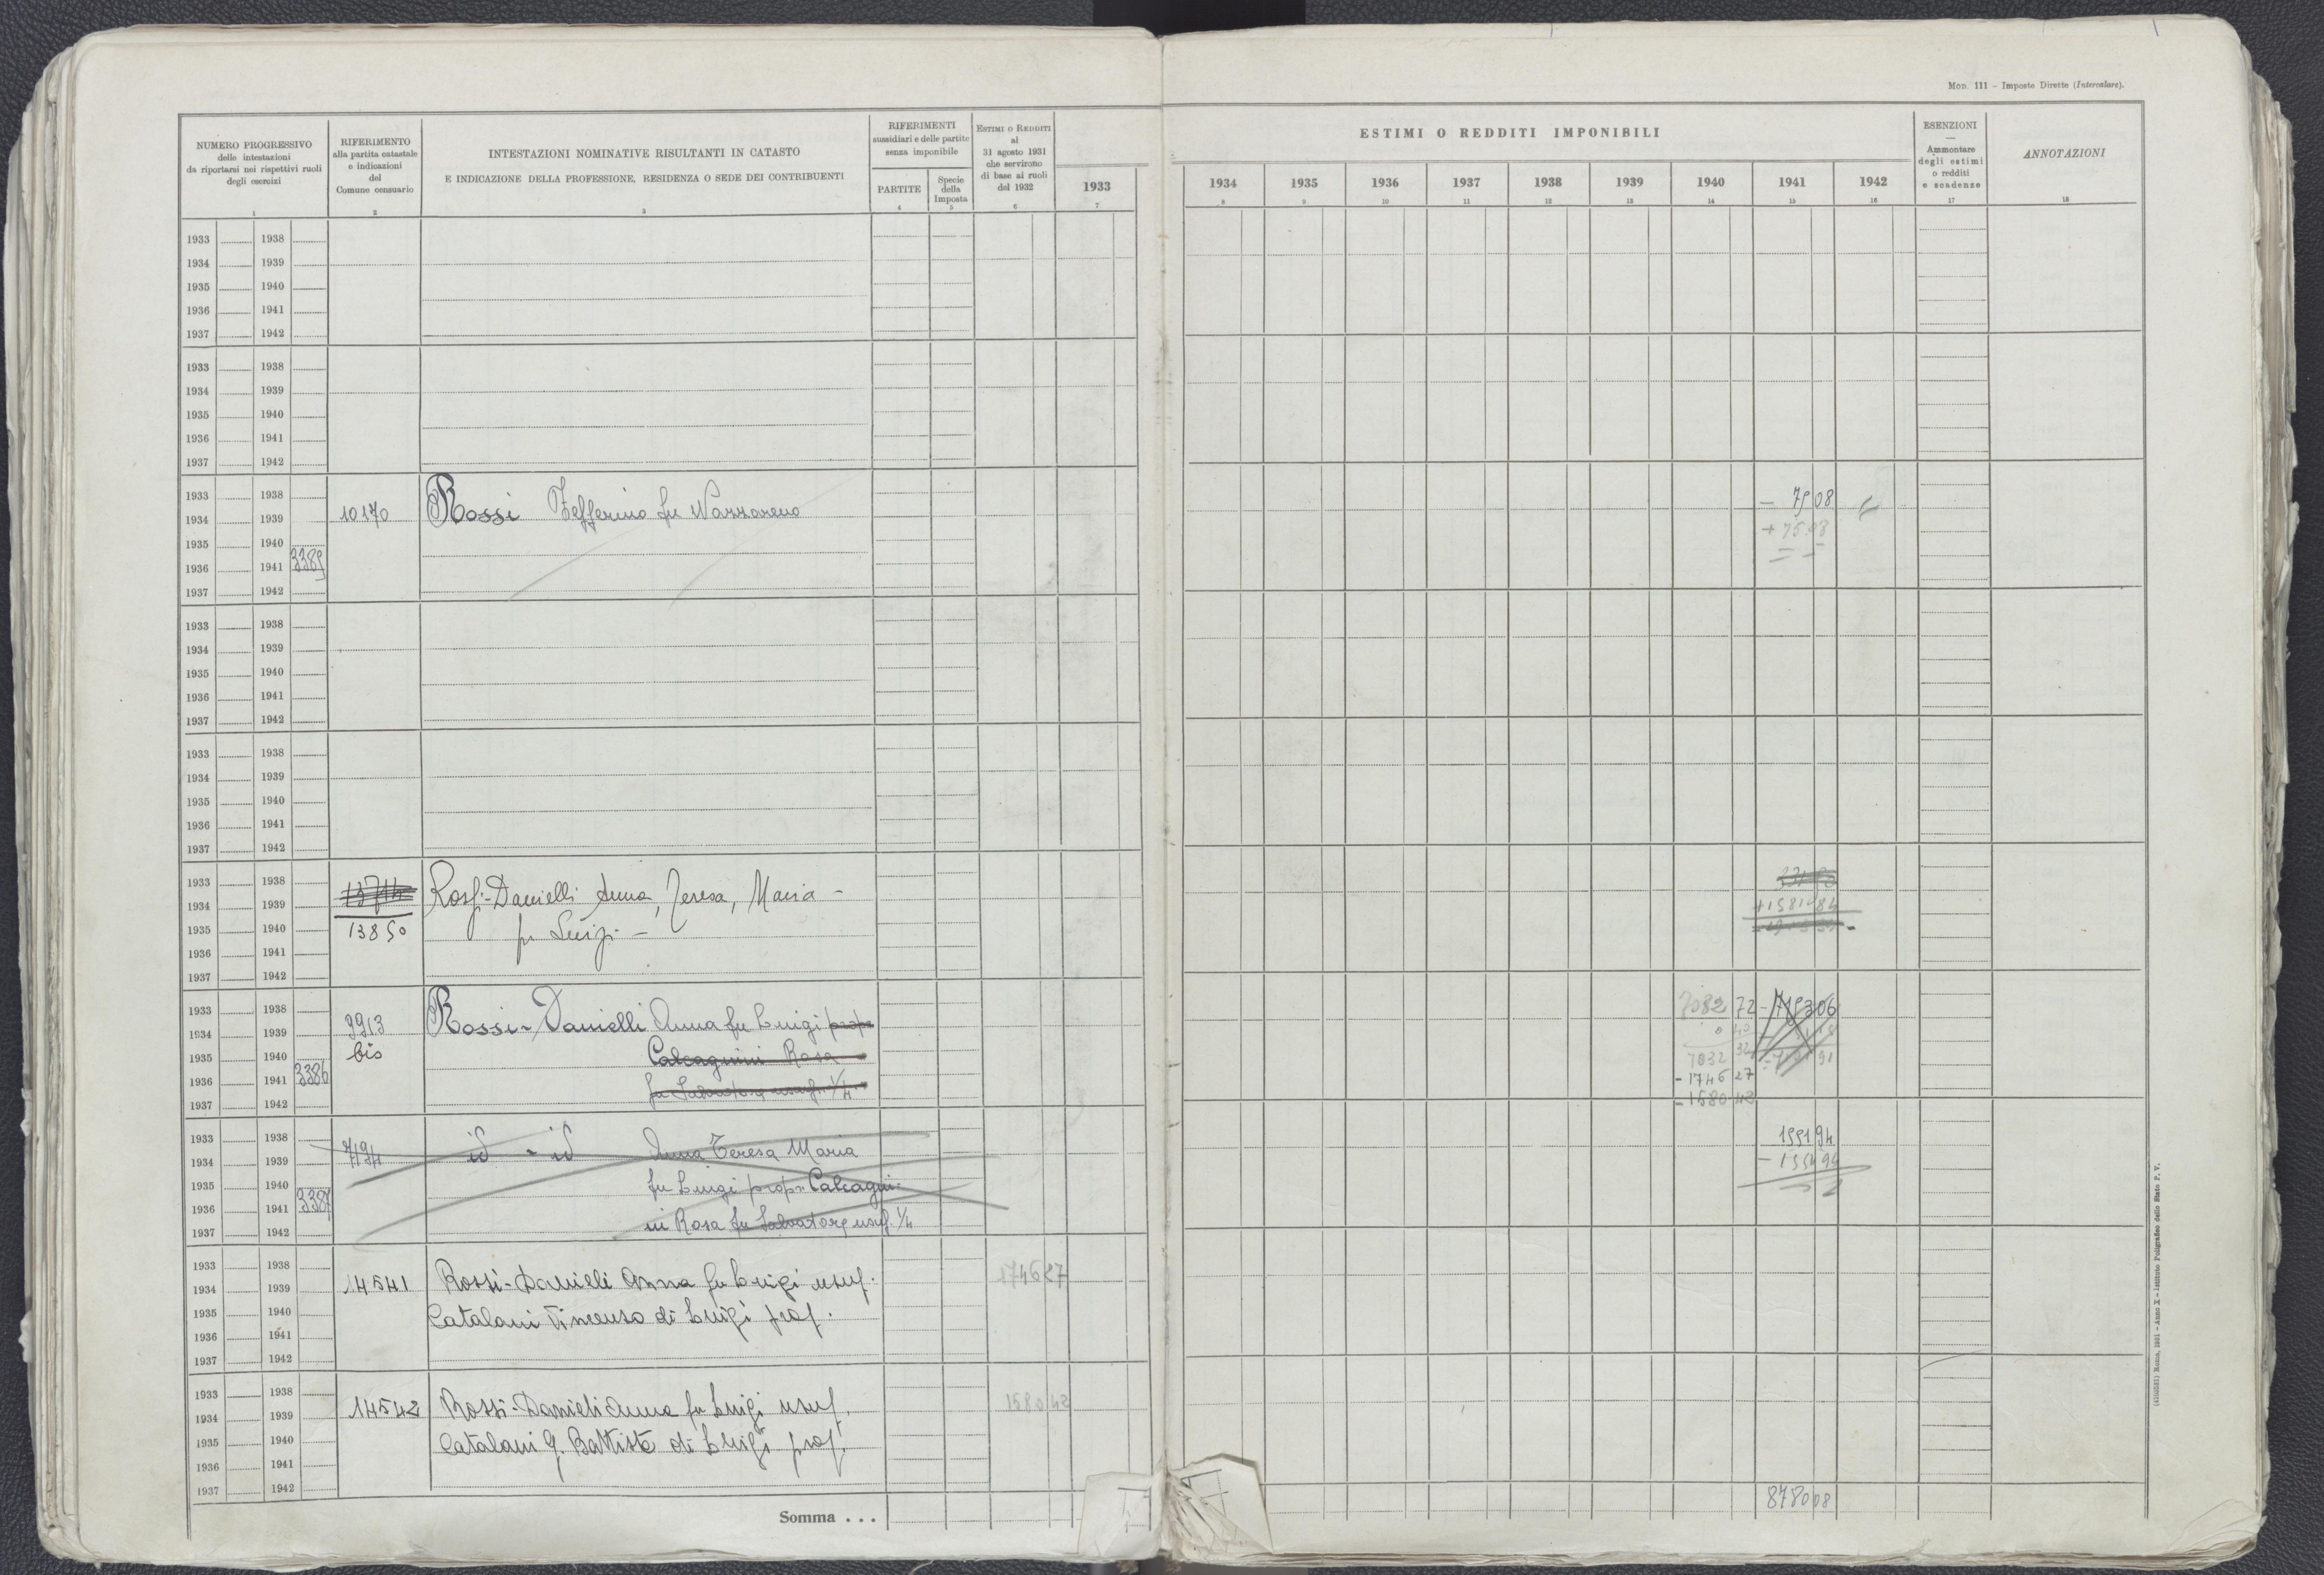 MOD. 111 – Imposte Dirette (Intercalare).
NUMERO PROGRESSIVO
delle intestazioni
da riportarsi nei rispettivi ruoli
degli esercizi
1
RIFERIMENTO
alla partita catastale
e indicazioni
del
Comune censuario
2
INTESTAZIONI NOMINATIVE RISULTANTI IN CATASTO
E INDICAZIONE DELLA PROFESSIONE, RESIDENZA O SEDE DEI CONTRIBUENTI
3
RIFERIMENTI
sussidiari e delle partite
senza imponibile
PARTITE
4
Specie
della
Imposta
5
ESTIMI O REDDITI
al
31 agosto 1931
che servirono
di base ai ruoli
del 1932
6
1933
7
ESTIMI O REDDITI IMPONIBILI
1934 1935 1936 1937 1938 1939 1940 1941 1942
8 9 10 11 12 13 14 15 16
ESENZIONI
—
Ammontare
degli estimi
o redditi
e scadenze
17
ANNOTAZIONI
18
1933 1938
1934 1939
1935 1940
1936 1941
1937 1942
1933 1938
1934 1939
1935 1940
1936 1941
1937 1942
1933 1938
1934 1939 10170 Rossi Zefferino fu Nazzareno – 75 08
1935 1940 + 75 08
1936 1941 3385
1937 1942
1933 1938
1934 1939
1935 1940
1936 1941
1937 1942
1933 1938
1934 1939
1935 1940
1936 1941
1937 1942
1933 1938
1934 1939 13714 Rossi-Danielli Anna, Teresa, Maria –
1935 1940 13850 fu Luigi – +1581 84
1936 1941
1937 1942
1933 1938
1934 1939 9913 Rossi-Danielli Anna fu Luigi propr 7082 72
1935 1940 bis Calcagnini Rosa 7032 32
1936 1941 3386 fu Salvatore usuf. 1/4 – 1746 27
1937 1942 – 1580 42
1933 1938 1551 94
1934 1939 7194 id - id Anna Teresa Maria – 1551 94
1935 1940 fu Luigi propr. Calcagni-
1936 1941 3387 ni Rosa fu Salvatore usuf. 1/4
1937 1942
1933 1938
1934 1939 14541 Rossi-Danieli Anna fu Luigi usuf. 1746 27
1935 1940 Catalani Vincenzo di Luigi prop.
1936 1941
1937 1942
1933 1938
1934 1939 14542 Rossi-Danieli Anna fu Luigi usuf. 1580 42
1935 1940 Catalani G. Battista di Luigi prop.
1936 1941
1937 1942
Somma . . . 8780 08
(4100581) Roma, 1931 – Anno X – Istituto Poligrafico dello Stato P. V.